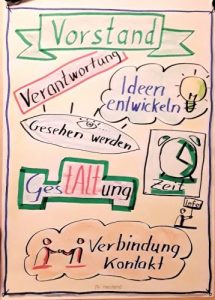 Vorstand
Verantwortung
Ideen
entwickeln
Gesehen werden
GesTALTung
Zeit
Info
Verbindung
Kontakt